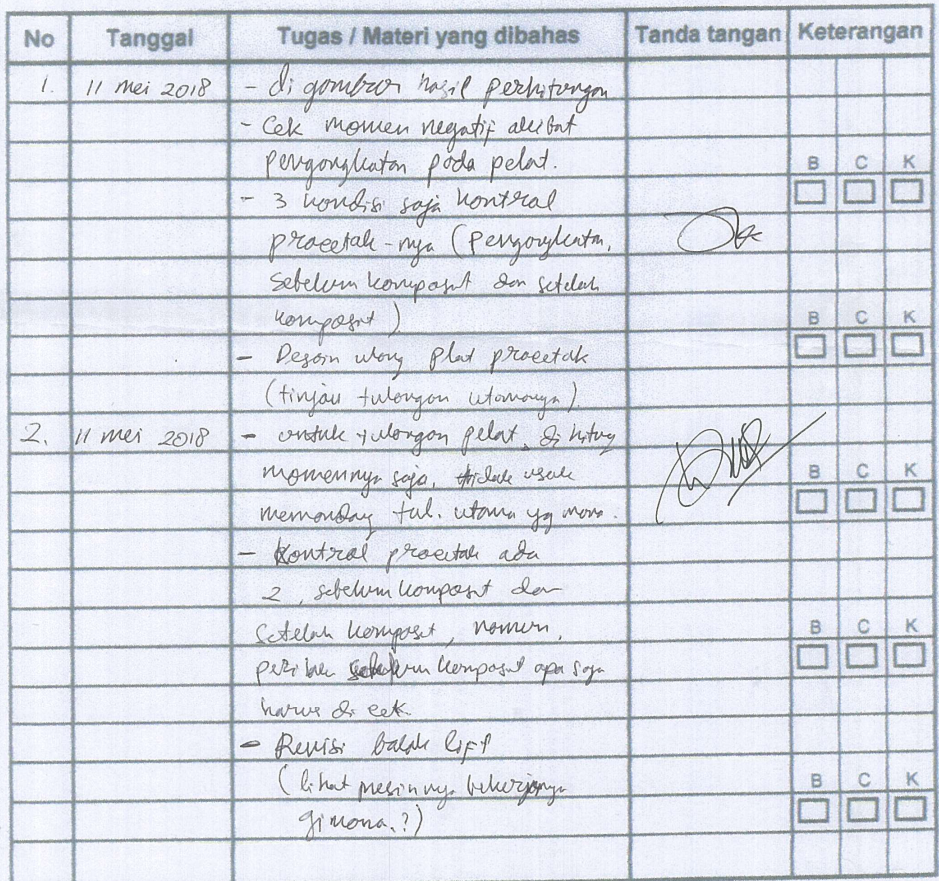 No Tanggal Tugas / Materi yang dibahas Tanda tangan Keterangan
1. 11 Mei 2018 - di gambar hasil perhitungan
- Cek momen negatif akibat
pengangkatan pada pelat.
B C K
- 3 kondisi saja kontrol
pracetak-nya (pengangkatan,
sebelum komposit dan setelah
komposit)
B C K
- Desain ulang plat pracetak
(tinjau tulangan utamanya)
2. 11 mei 2018 - untuk tulangan pelat, di hitung
momennya saja, tidak usah
B C K
memandang tul. utama yg mana.
- Kontrol pracetak ada
2, sebelum komposit dan
setelah komposit, momen,
B C K
sebelum komposit apa saja
harus di cek.
- Revisi balok lift
(lihat mesinnya bekerjanya
B C K
gimana.?)